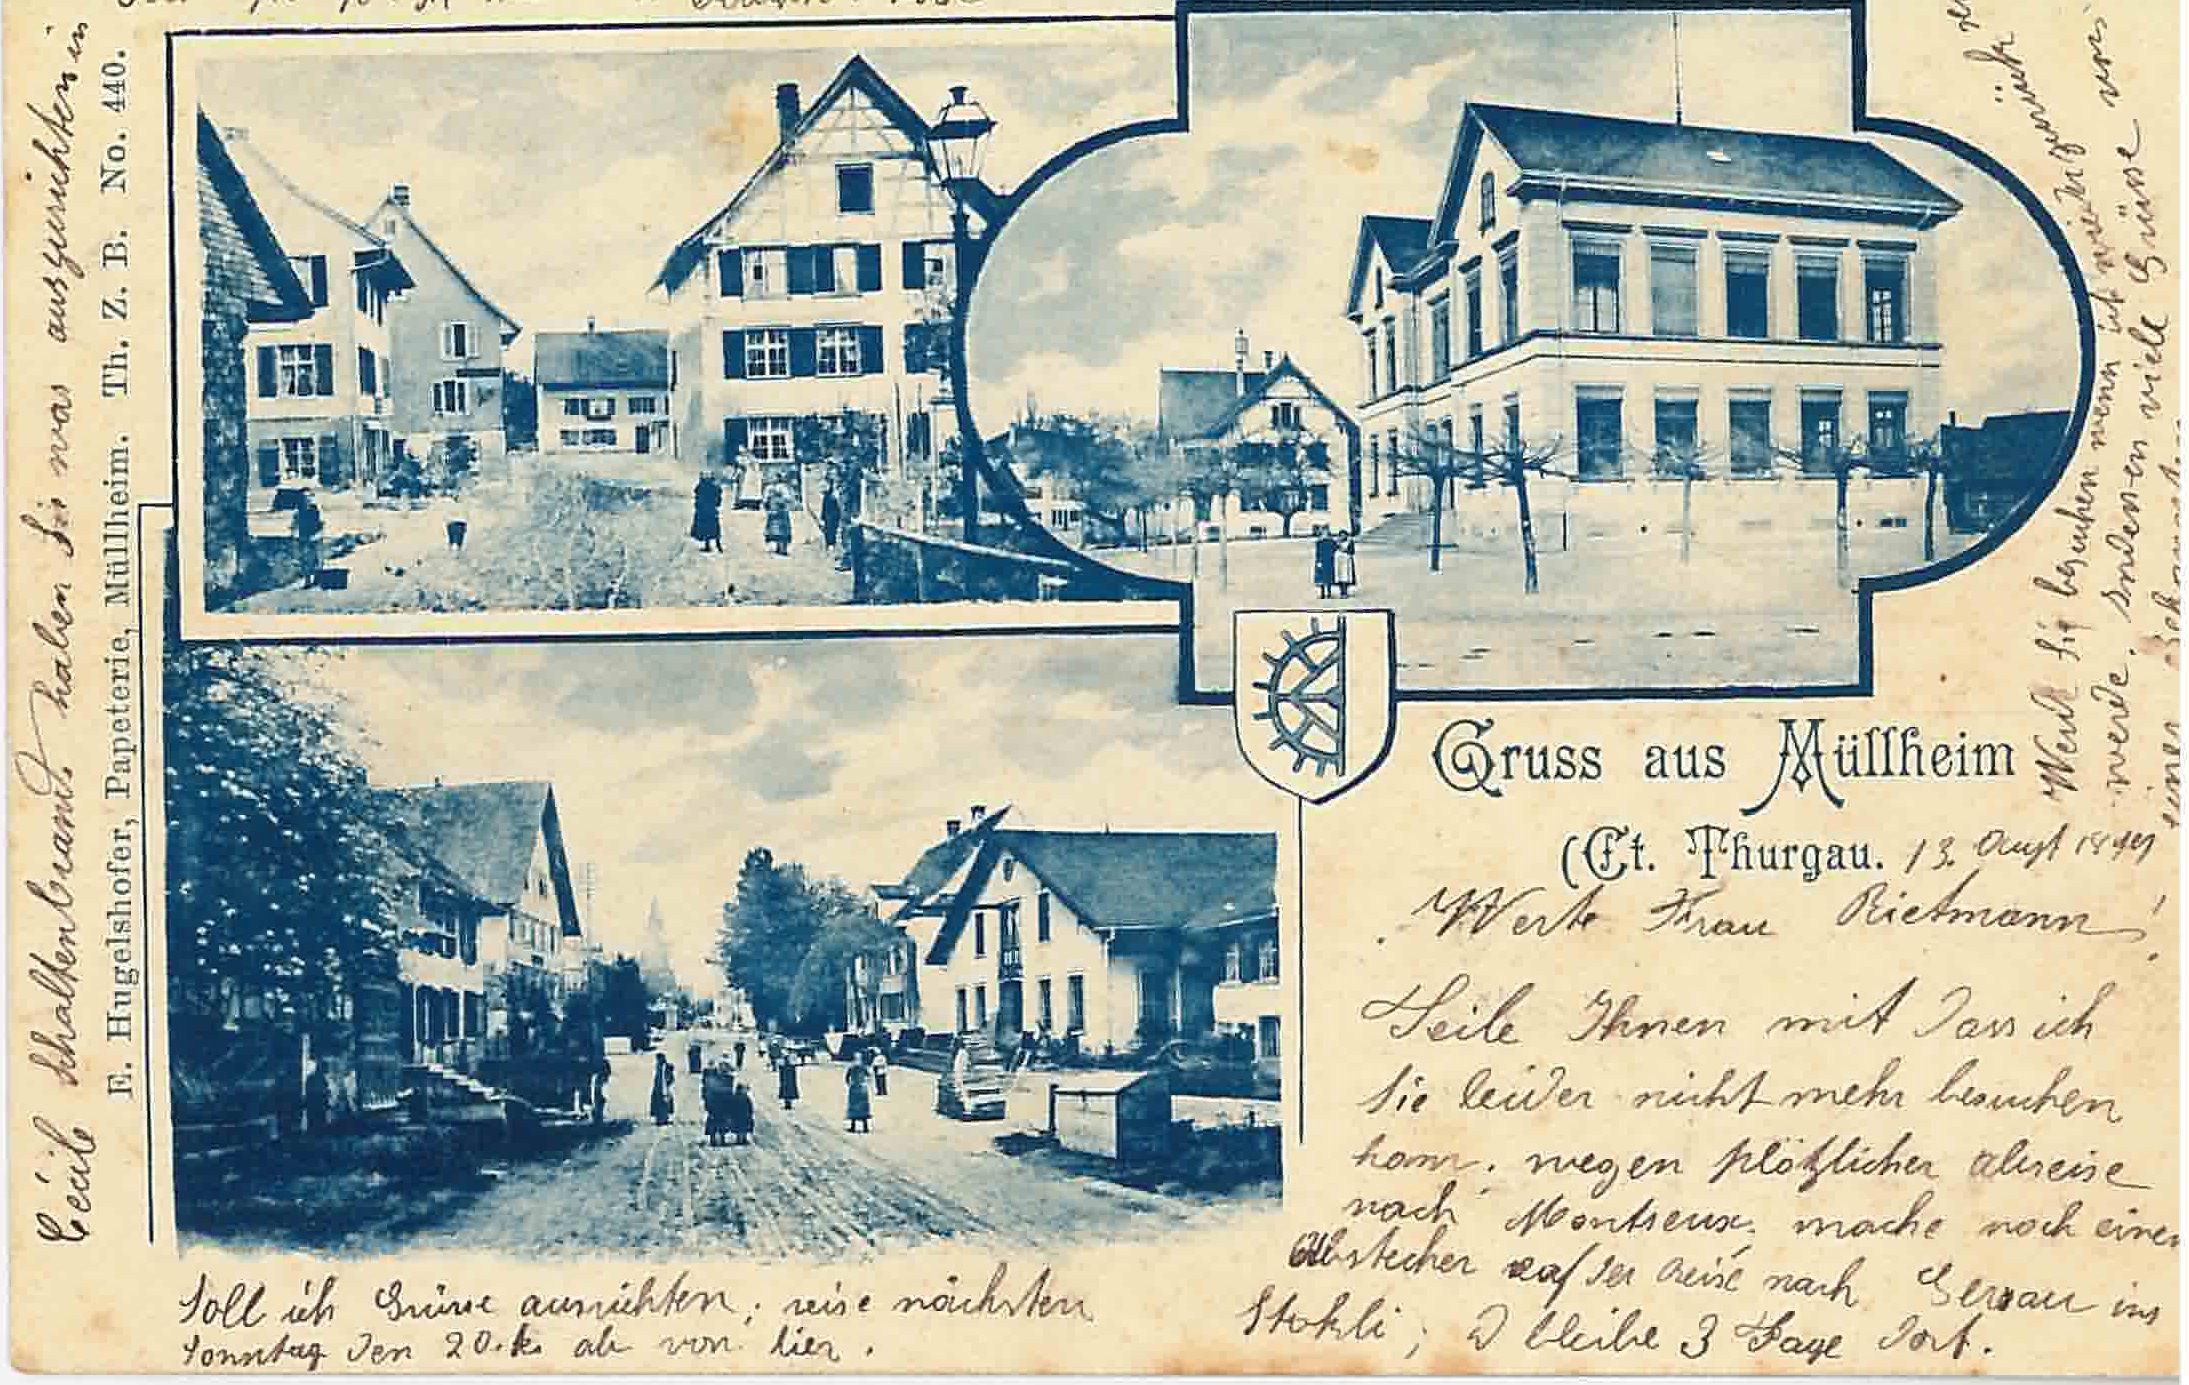 Gruss aus Müllheim
(Ct. Thurgau.
13. Augst 1899
Werte Frau Rietmann!
Teile Ihnen mit dass ich
Sie leider nicht mehr besuchen
kann. wegen plötzlicher abreise
nach Montreux. mache noch einen
Abstecher auf der reise nach Gersau ins
Stokli; bleibe 3 Tage dort.
soll ich Grüsse ausrichten; reise nächsten
Sonntag den 20. ab von hier.
E. Hugelshofer, Papeterie, Müllheim. Th. Z. B. No. 440.
Cecile Schaltenbrand. haben Sie was auszurichten in
Werde Sie besuchen wenn ich wieder zurück
werde. senden viele Grüsse von
einer